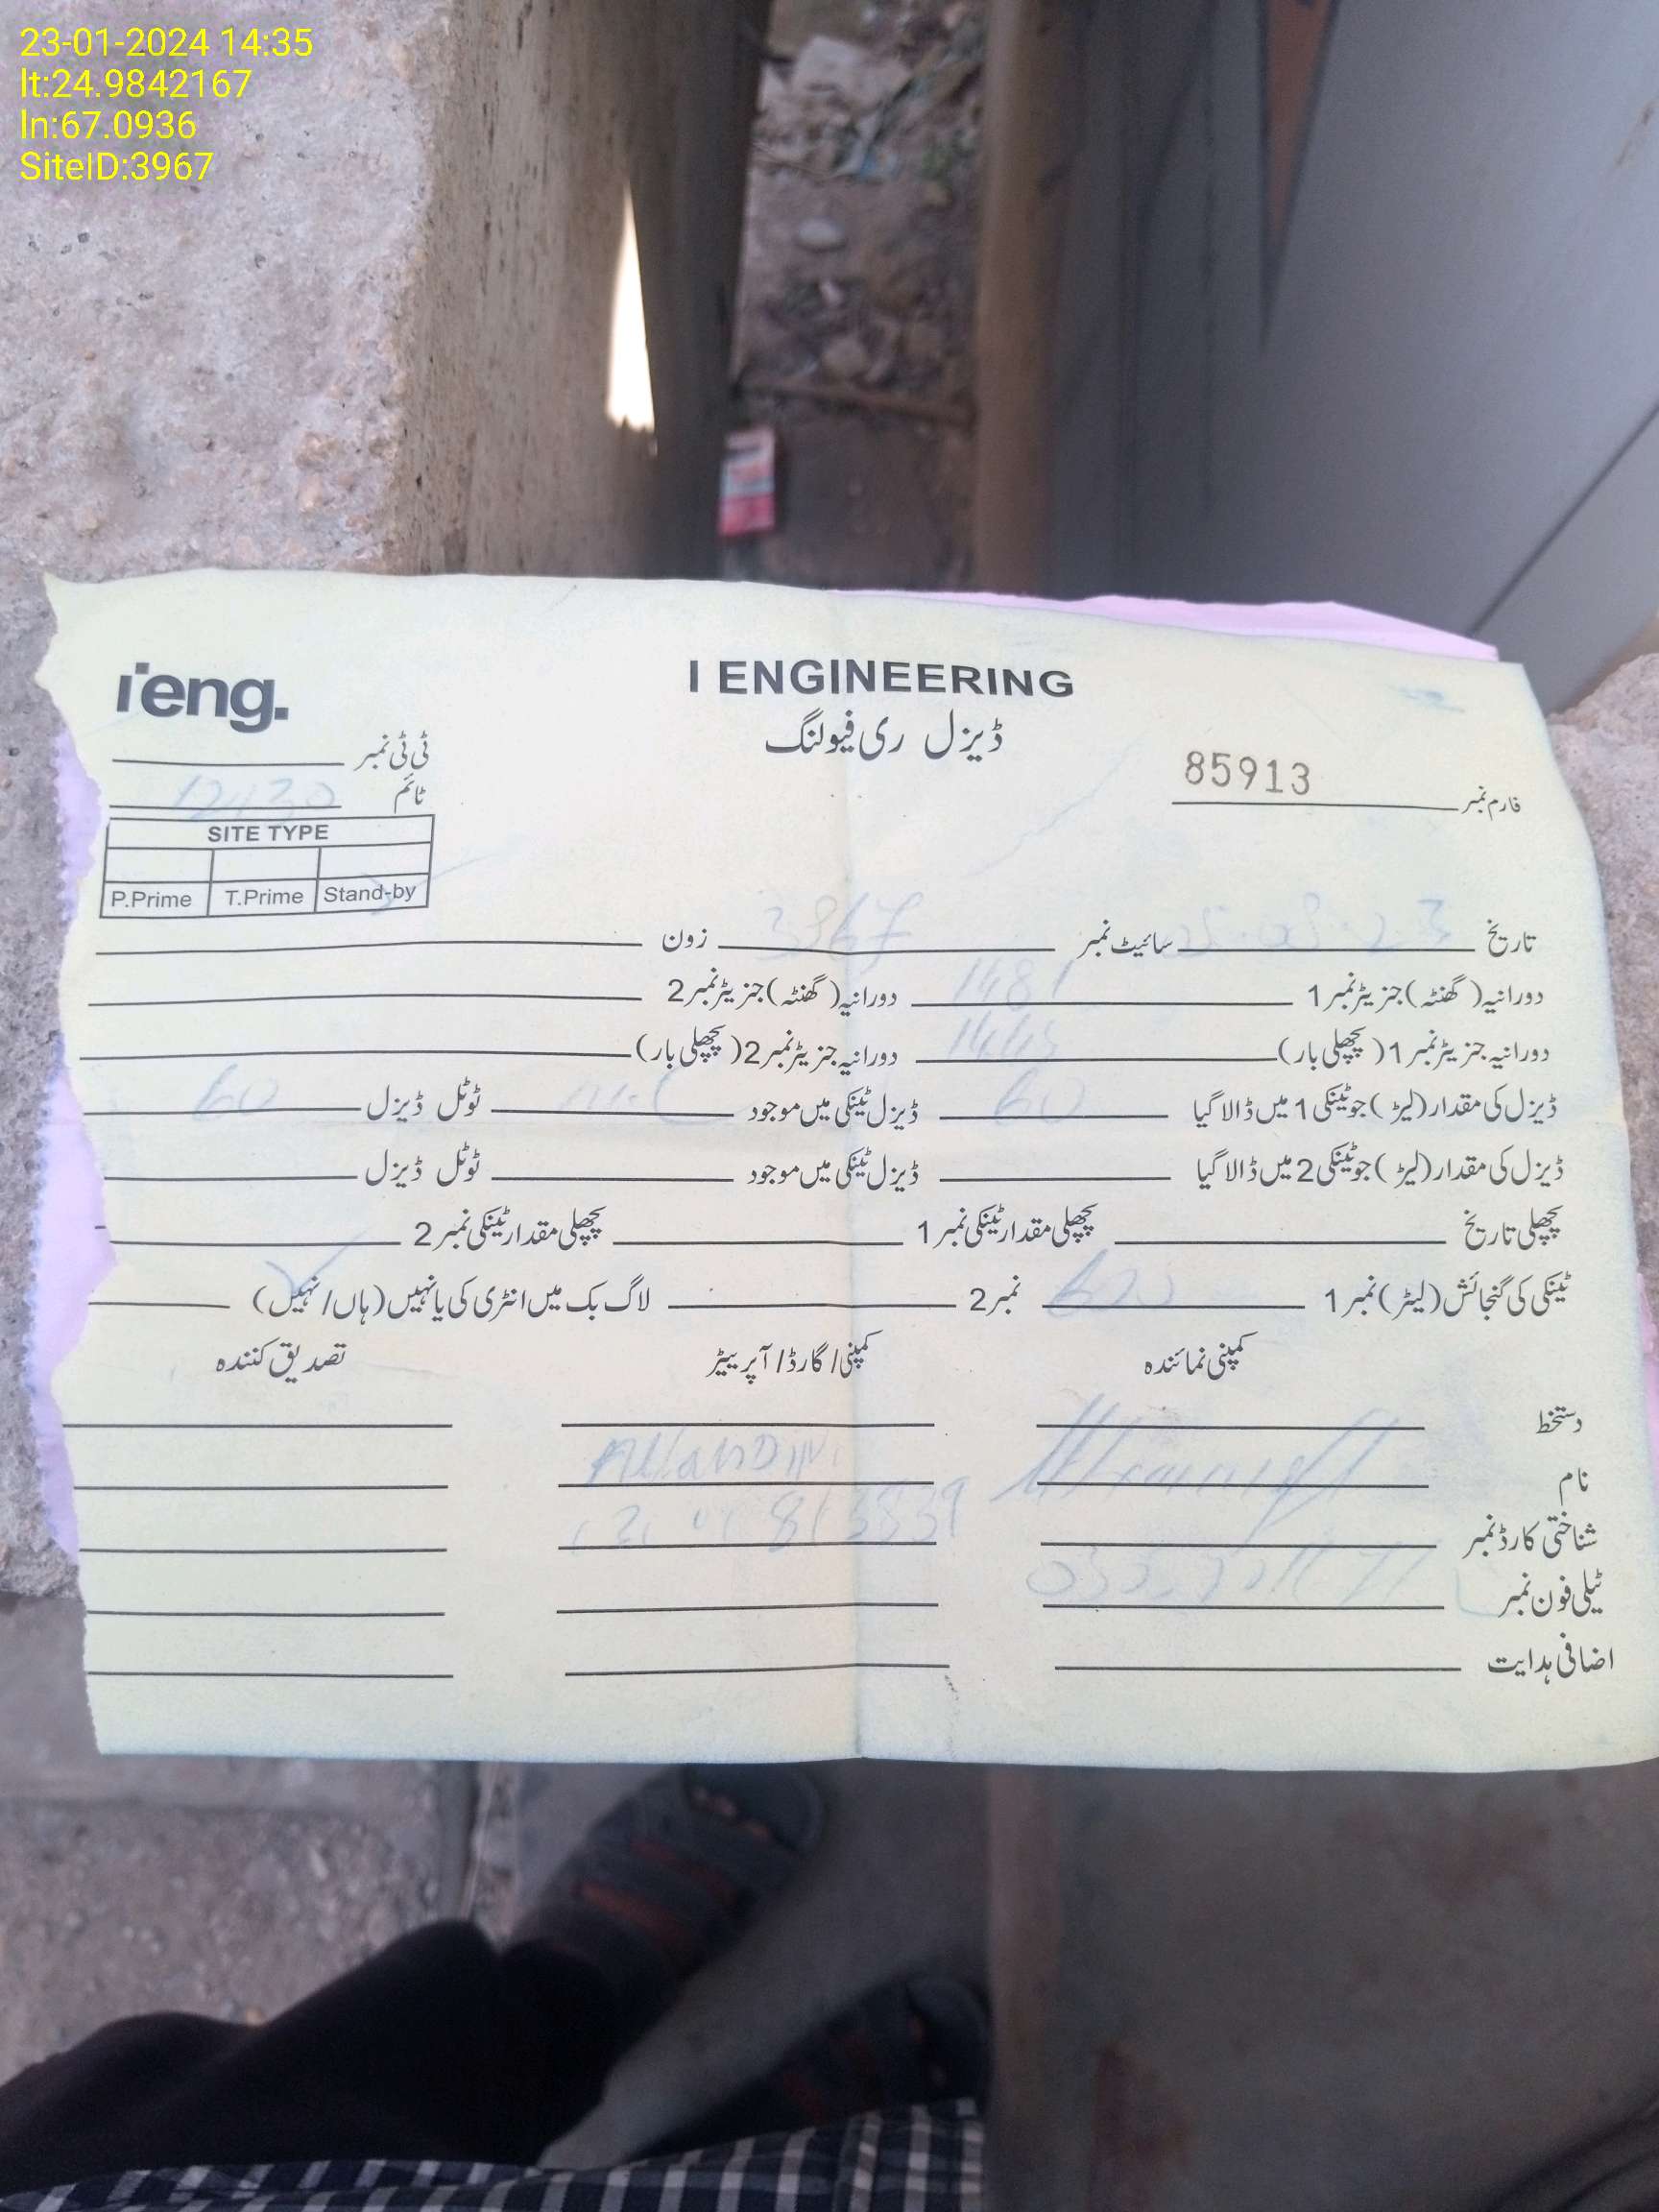 23-01-2024 14:35
lt:24.9842167
ln:67.0936
SiteID:3967
i'eng.
I ENGINEERING
ڈیزل ری فیولنگ
ٹی ٹی نمبر
ٹائم 12:30
فارم نمبر 85913
SITE TYPE
P.Prime T.Prime Stand-by
تاریخ سائیٹ نمبر 3967 زون
دورانیہ (گھنٹہ) جنریٹر نمبر 1 1481 دورانیہ (گھنٹہ) جنریٹر نمبر 2
دورانیہ جنریٹر نمبر 1 (پچھلی بار) دورانیہ جنریٹر نمبر 2 (پچھلی بار)
ڈیزل کی مقدار (لیٹر) جو ٹینکی 1 میں ڈالا گیا 60 ڈیزل ٹینکی میں موجود ٹوٹل ڈیزل 60
ڈیزل کی مقدار (لیٹر) جو ٹینکی 2 میں ڈالا گیا ڈیزل ٹینکی میں موجود ٹوٹل ڈیزل
پچھلی تاریخ پچھلی مقدار ٹینکی نمبر 1 پچھلی مقدار ٹینکی نمبر 2
ٹینکی کی گنجائش (لیٹر) نمبر 1 نمبر 2 لاگ بک میں انٹری کی یا نہیں (ہاں/نہیں)
کمپنی نمائندہ کمپنی/گارڈ/آپریٹر تصدیق کنندہ
دستخط
نام
شناختی کارڈ نمبر
ٹیلی فون نمبر
اضافی ہدایت